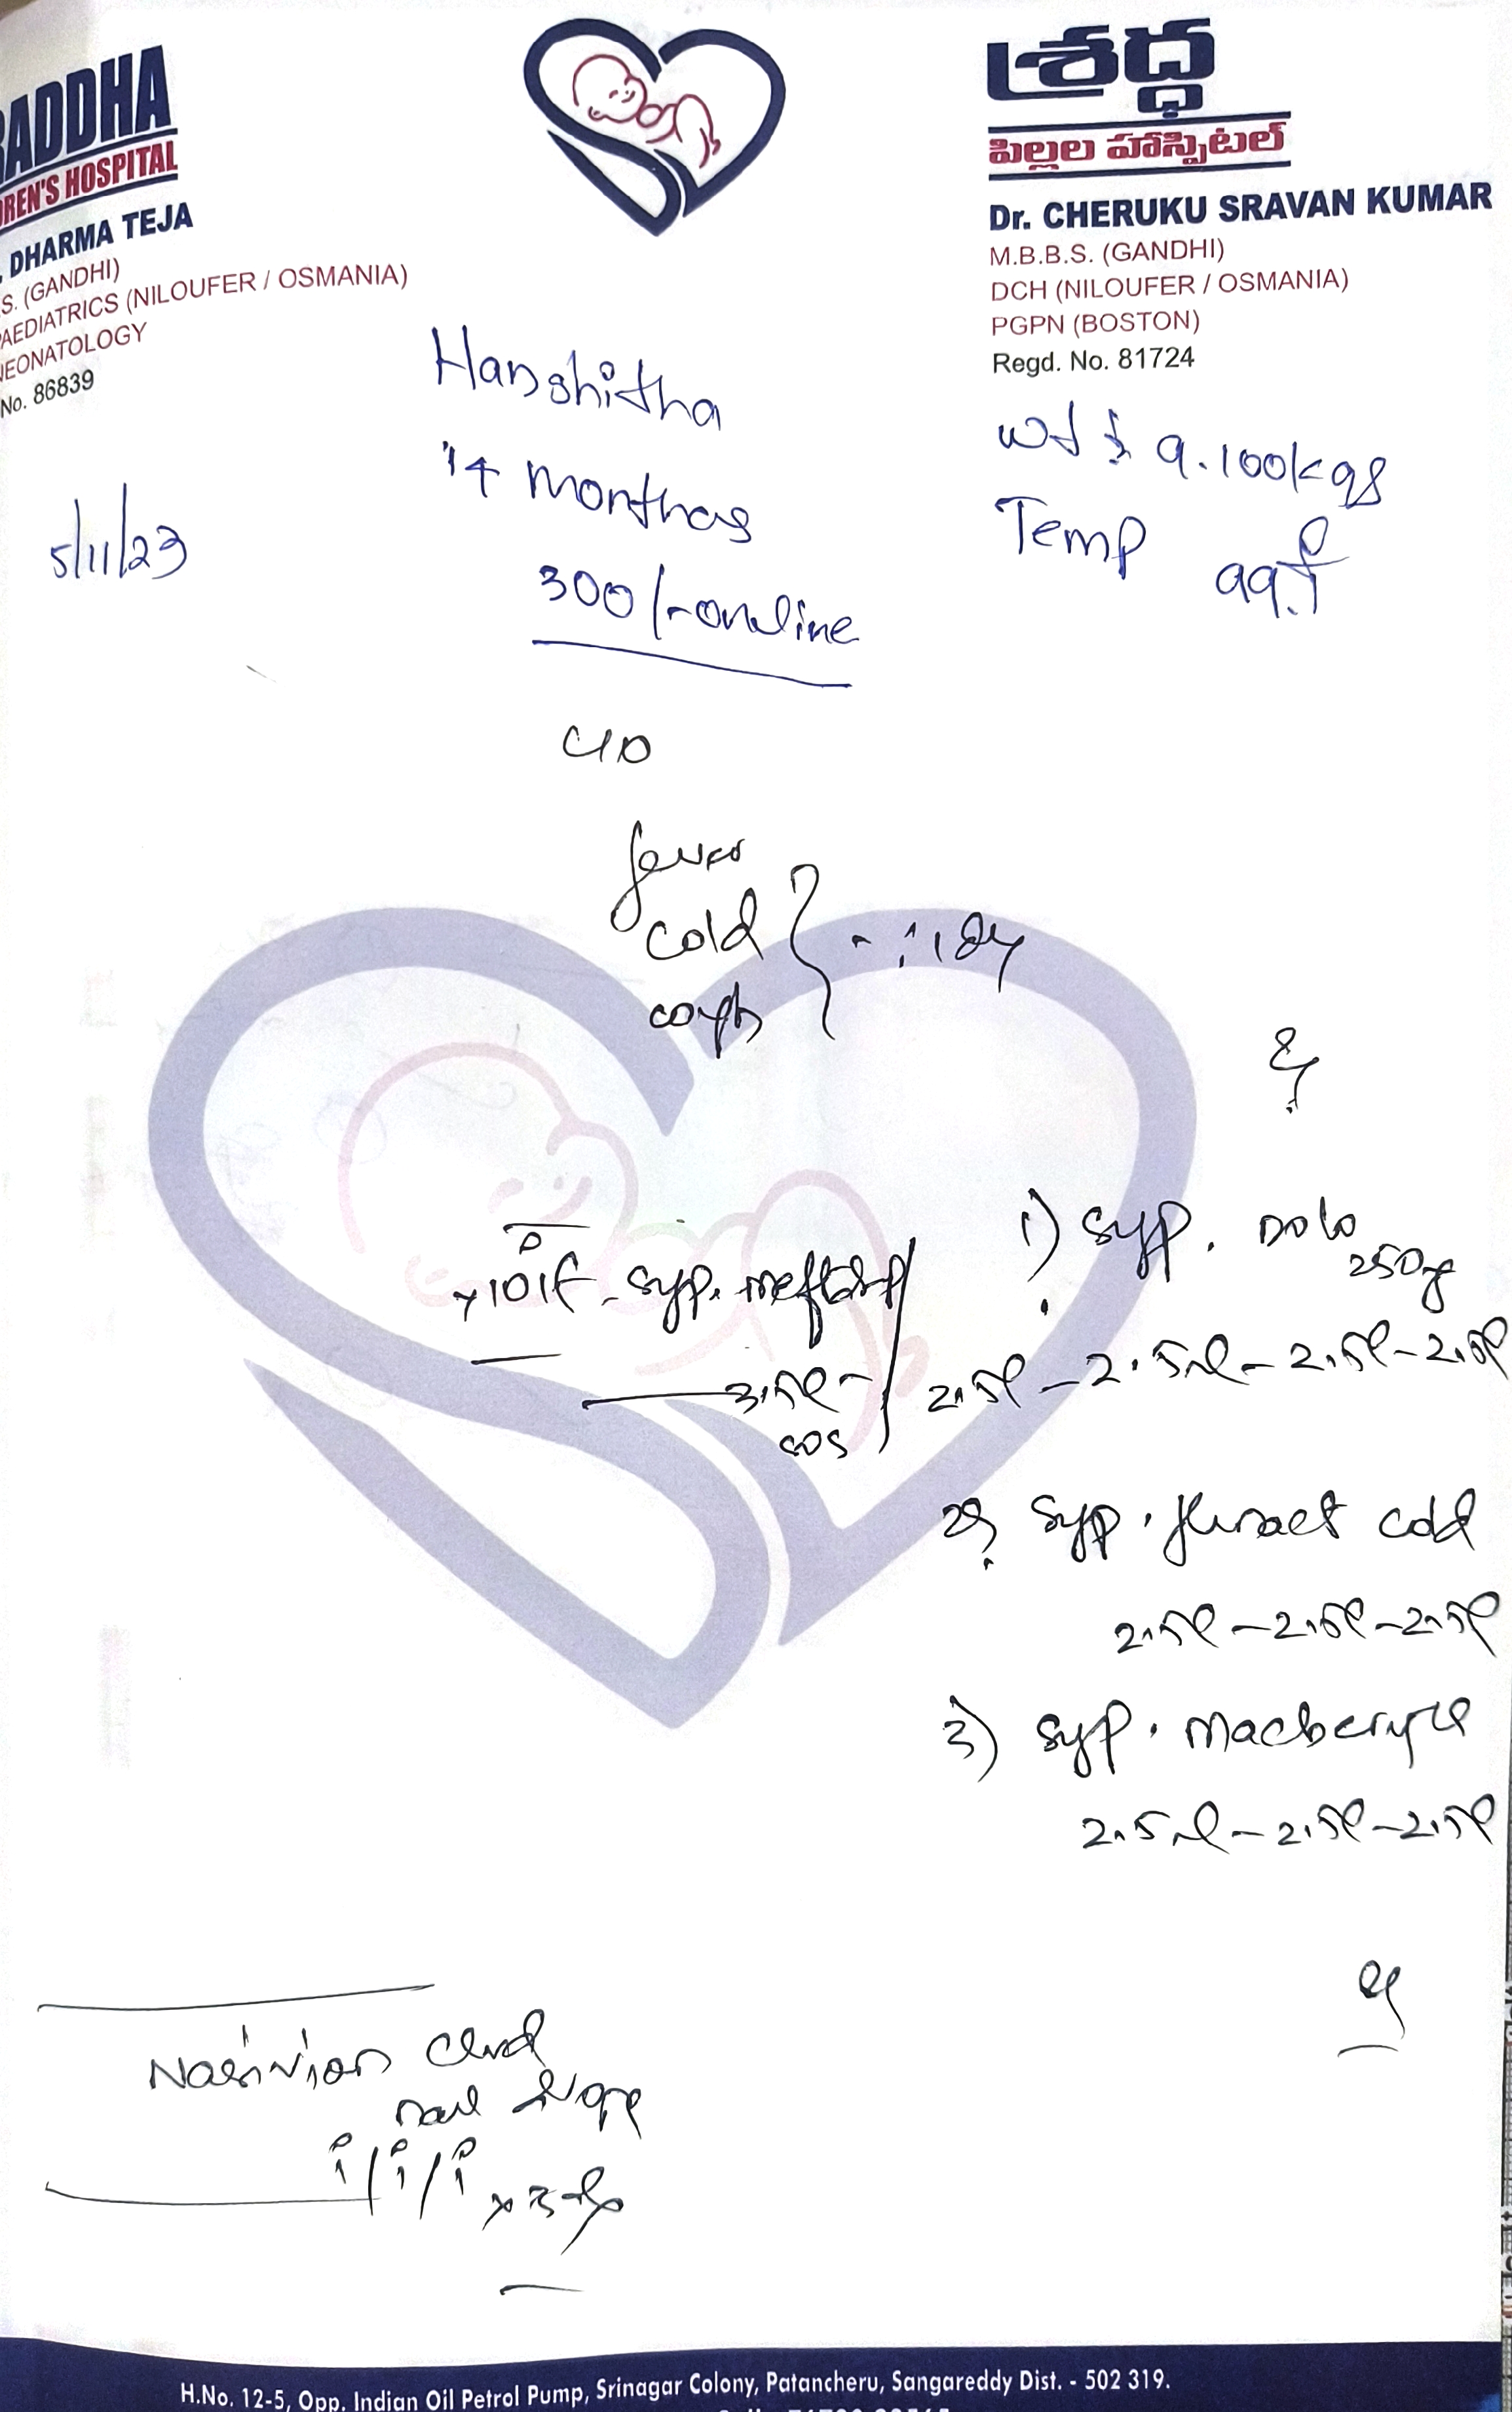 RADDHA
DREN'S HOSPITAL
. DHARMA TEJA
S. (GANDHI)
AEDIATRICS (NILOUFER / OSMANIA)
NEONATOLOGY
No. 86839
శ్రద్ధ
పిల్లల హాస్పిటల్
Dr. CHERUKU SRAVAN KUMAR
M.B.B.S. (GANDHI)
DCH (NILOUFER / OSMANIA)
PGPN (BOSTON)
Regd. No. 81724
Harshitha
14 months
300/- online
5/11/23
wt : 9.100kgs
Temp 99.f
C/O
fever
cold
cough
1) Syp. Dolo
250
2.5ml - 2.5ml - 2.5ml - 2.5ml
>101f - Syp. meftal p
sos
2) Syp. cold
2.5ml - 2.5ml - 2.5ml
3) Syp. macberry
2.5ml - 2.5ml - 2.5ml
Nasivion
H.No. 12-5, Opp. Indian Oil Petrol Pump, Srinagar Colony, Patancheru, Sangareddy Dist. - 502 319.